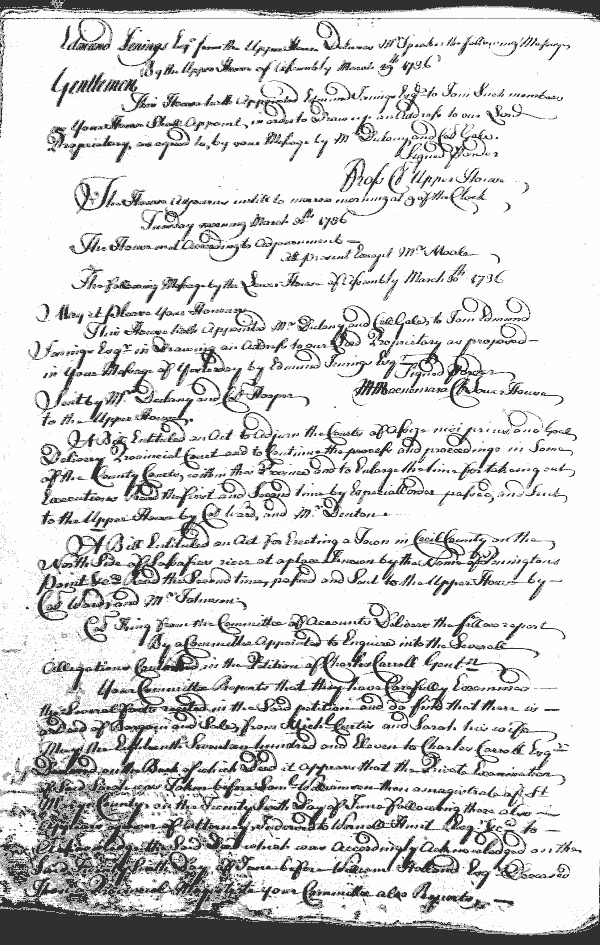 Edmund Jenings Esqr. from the Upper House Delivers Mr. Speaker the following Message
By the Upper House of Assembly March 29th 1736
Gentlemen
This House hath Appointed Edmund Jenings Esqr. to Join Such members
as Your House Shall Appoint, in order to Draw up an Address to our Lord
Proprietary, as agreed to, by your Message by Mr. Dulany and Col. Gale.
Signed Order
Ross Cl Upper House
The House adjourns until to morrow morning at 9 of the Clock
Tuesday morning March 30th 1736
The House met According to Adjournment
all present Except Mr. Moale
The following Message by the Lower House of Assembly March 30th 1736
May it please Your Honours
This House hath Appointed Mr. Dulany and Col. Gale, to Join Edmund
Jenings Esqr. in Drawing an Address to our Lord Proprietary as proposed
in Your Message of Yesterday by Edmund Jenings Esqr.
Signed Order
Sent by Mr. Dulany and Col. Hooper
MMacnemara Cl Lower House
to the Upper House.
A Bill Entituled an Act to Adjurn the Courts of Assize nisi prius, and Goal
Delivery Provincial Court and to Continue the process and proceedings in Some
of the County Courts, within this Province and to Enlarge the time for taking out
Executions Read the first and Second time by Especial order passed, and Sent
to the Upper House by Col. Ward, and Mr. Denton
A Bill Entituled an Act for Erecting a Town in Cecil County on the
North Side of Sasafras river at a place Known by the Name of Penningtons
Point &ca. Read the Second time, passed and Sent to the Upper House by
Col. Ward, and Mr. Johnson
Col. King from the Committee of Accounts Delivers the follow report
By a Committee Appointed to Enquire into the Severall
Allegations Contained in the Petition of Charles Carroll Gent
Your Committee Reports that they have Carefully Examined
the Several facts recited in the Said petition and do find that there is
a Deed of Bargain and Sale, from Michl. Curtis and Sarah his wife
the fifteenth Seventeen hundred and Eleven to Charles Carroll Esqr.
on the Back of which Deed it appears that the Private Examination
of Said Sarah was Taken before Saml. Williamson then a magistrate of St
Marys County, on the Twenty Sixth Day of June following there also
appears a power of Attorney to
Acknowledge the Said Deed which was Accordingly Acknowledged on the
Said Day of June before William Holland Esqr. Deceased
then a Provincial Magistrate your Committee also Reports,